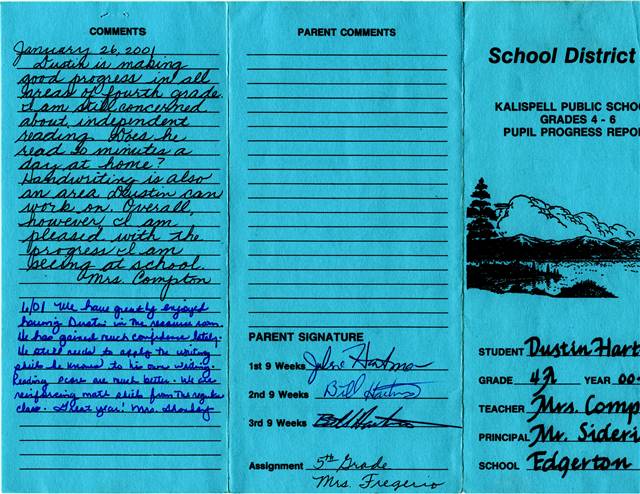 COMMENTS
January 26, 2001
Dustin is making
good progress in all
areas of fourth grade.
I am still concerned
about independent
reading. Does he
read 20 minutes a
day at home?
Handwriting is also
an area Dustin can
work on. Overall,
however I am
pleased with the
progress I am
seeing at school.
Mrs. Compton
6/01 We have greatly enjoyed
having Dustin in the resource room.
He has gained much confidence lately.
He still needs to apply the writing
skills he knows to his own writing.
Reading scores are much better. We are
reinforcing math skills from the regular
class. Great year! Mrs.
PARENT COMMENTS
PARENT SIGNATURE
1st 9 Weeks
2nd 9 Weeks Bill
3rd 9 Weeks Bill
Assignment 5th Grade
Mrs. Fregerio
School District
KALISPELL PUBLIC SCHOO
GRADES 4 - 6
PUPIL PROGRESS REPOR
STUDENT Dustin Hart
GRADE 4th YEAR 00-
TEACHER Mrs. Comp
PRINCIPAL Mr. Sideri
SCHOOL Edgerton